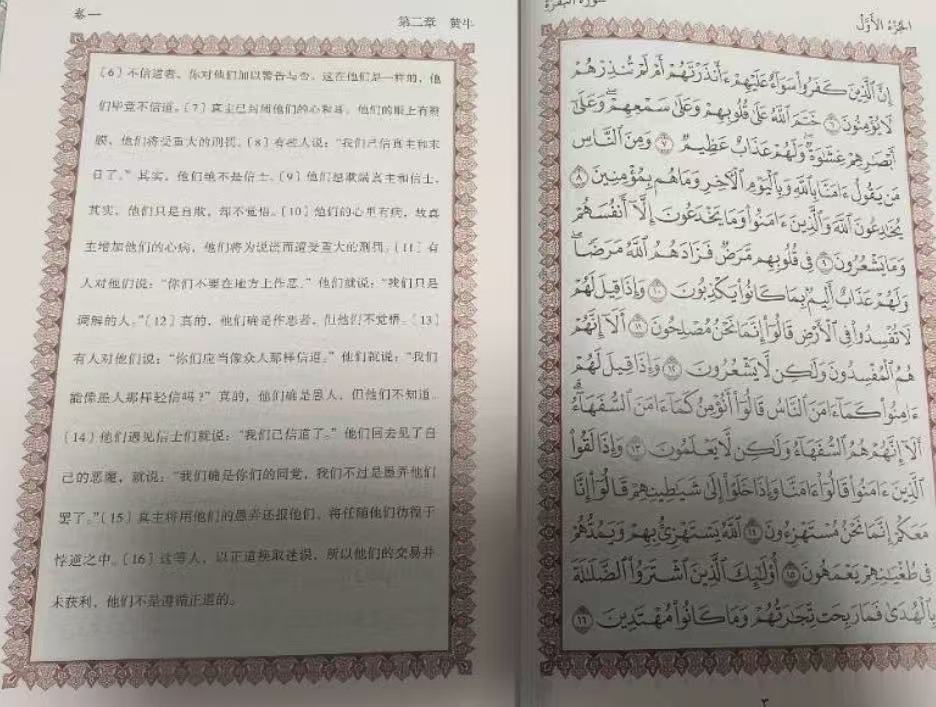 卷一
第二章 黄牛
〔6〕不信道者，你对他们加以警告与否，这在他们是一样的，他
们毕竟不信道。〔7〕真主已封闭他们的心和耳，他们的眼上有翳
膜，他们将受重大的刑罚。〔8〕有些人说：“我们已信真主和末
日了。”其实，他们绝不是信士。〔9〕他们想欺瞒真主和信士，
其实，他们只是自欺，却不觉悟。〔10〕他们的心里有病，故真
主增加他们的心病，他们将为说谎而遭受重大的刑罚。〔11〕有
人对他们说：“你们不要在地方上作恶。”他们就说：“我们只是
调解的人。”〔12〕真的，他们确是作恶者，但他们不觉悟。〔13〕
有人对他们说：“你们应当像众人那样信道。”他们就说：“我们
能像愚人那样轻信吗？”真的，他们确是愚人，但他们不知道。
〔14〕他们遇见信士们就说：“我们已信道了。”他们回去见了自
己的恶魔，就说：“我们确是你们的同党，我们不过是愚弄他们
罢了。”〔15〕真主将用他们的愚弄还报他们，将任随他们彷徨于
悖逆之中。〔16〕这等人，以正道换取迷误，所以他们的交易并
未获利，他们不是遵循正道的。
الجزء الأوّل
سورة البقرة
إِنَّ ٱلَّذِينَ كَفَرُوا۟ سَوَآءٌ عَلَيْهِمْ ءَأَنذَرْتَهُمْ أَمْ لَمْ تُنذِرْهُمْ
لَا يُؤْمِنُونَ ٦ خَتَمَ ٱللَّهُ عَلَىٰ قُلُوبِهِمْ وَعَلَىٰ سَمْعِهِمْ ۖ وَعَلَىٰٓ
أَبْصَـٰرِهِمْ غِشَـٰوَةٌ ۖ وَلَهُمْ عَذَابٌ عَظِيمٌ ٧ وَمِنَ ٱلنَّاسِ
مَن يَقُولُ ءَامَنَّا بِٱللَّهِ وَبِٱلْيَوْمِ ٱلْـَٔاخِرِ وَمَا هُم بِمُؤْمِنِينَ ٨
يُخَـٰدِعُونَ ٱللَّهَ وَٱلَّذِينَ ءَامَنُوا۟ وَمَا يَخْدَعُونَ إِلَّآ أَنفُسَهُمْ
وَمَا يَشْعُرُونَ ٩ فِى قُلُوبِهِم مَّرَضٌ فَزَادَهُمُ ٱللَّهُ مَرَضًا ۖ
وَلَهُمْ عَذَابٌ أَلِيمٌۢ بِمَا كَانُوا۟ يَكْذِبُونَ ١٠ وَإِذَا قِيلَ لَهُمْ
لَا تُفْسِدُوا۟ فِى ٱلْأَرْضِ قَالُوٓا۟ إِنَّمَا نَحْنُ مُصْلِحُونَ ١١ أَلَآ إِنَّهُمْ
هُمُ ٱلْمُفْسِدُونَ وَلَـٰكِن لَّا يَشْعُرُونَ ١٢ وَإِذَا قِيلَ لَهُمْ
ءَامِنُوا۟ كَمَآ ءَامَنَ ٱلنَّاسُ قَالُوٓا۟ أَنُؤْمِنُ كَمَآ ءَامَنَ ٱلسُّفَهَآءُ ۗ
أَلَآ إِنَّهُمْ هُمُ ٱلسُّفَهَآءُ وَلَـٰكِن لَّا يَعْلَمُونَ ١٣ وَإِذَا لَقُوا۟
ٱلَّذِينَ ءَامَنُوا۟ قَالُوٓا۟ ءَامَنَّا وَإِذَا خَلَوْا۟ إِلَىٰ شَيَـٰطِينِهِمْ قَالُوٓا۟ إِنَّا
مَعَكُمْ إِنَّمَا نَحْنُ مُسْتَهْزِءُونَ ١٤ ٱللَّهُ يَسْتَهْزِئُ بِهِمْ وَيَمُدُّهُمْ
فِى طُغْيَـٰنِهِمْ يَعْمَهُونَ ١٥ أُو۟لَـٰٓئِكَ ٱلَّذِينَ ٱشْتَرَوُا۟ ٱلضَّلَـٰلَةَ
بِٱلْهُدَىٰ فَمَا رَبِحَت تِّجَـٰرَتُهُمْ وَمَا كَانُوا۟ مُهْتَدِينَ ١٦
٣